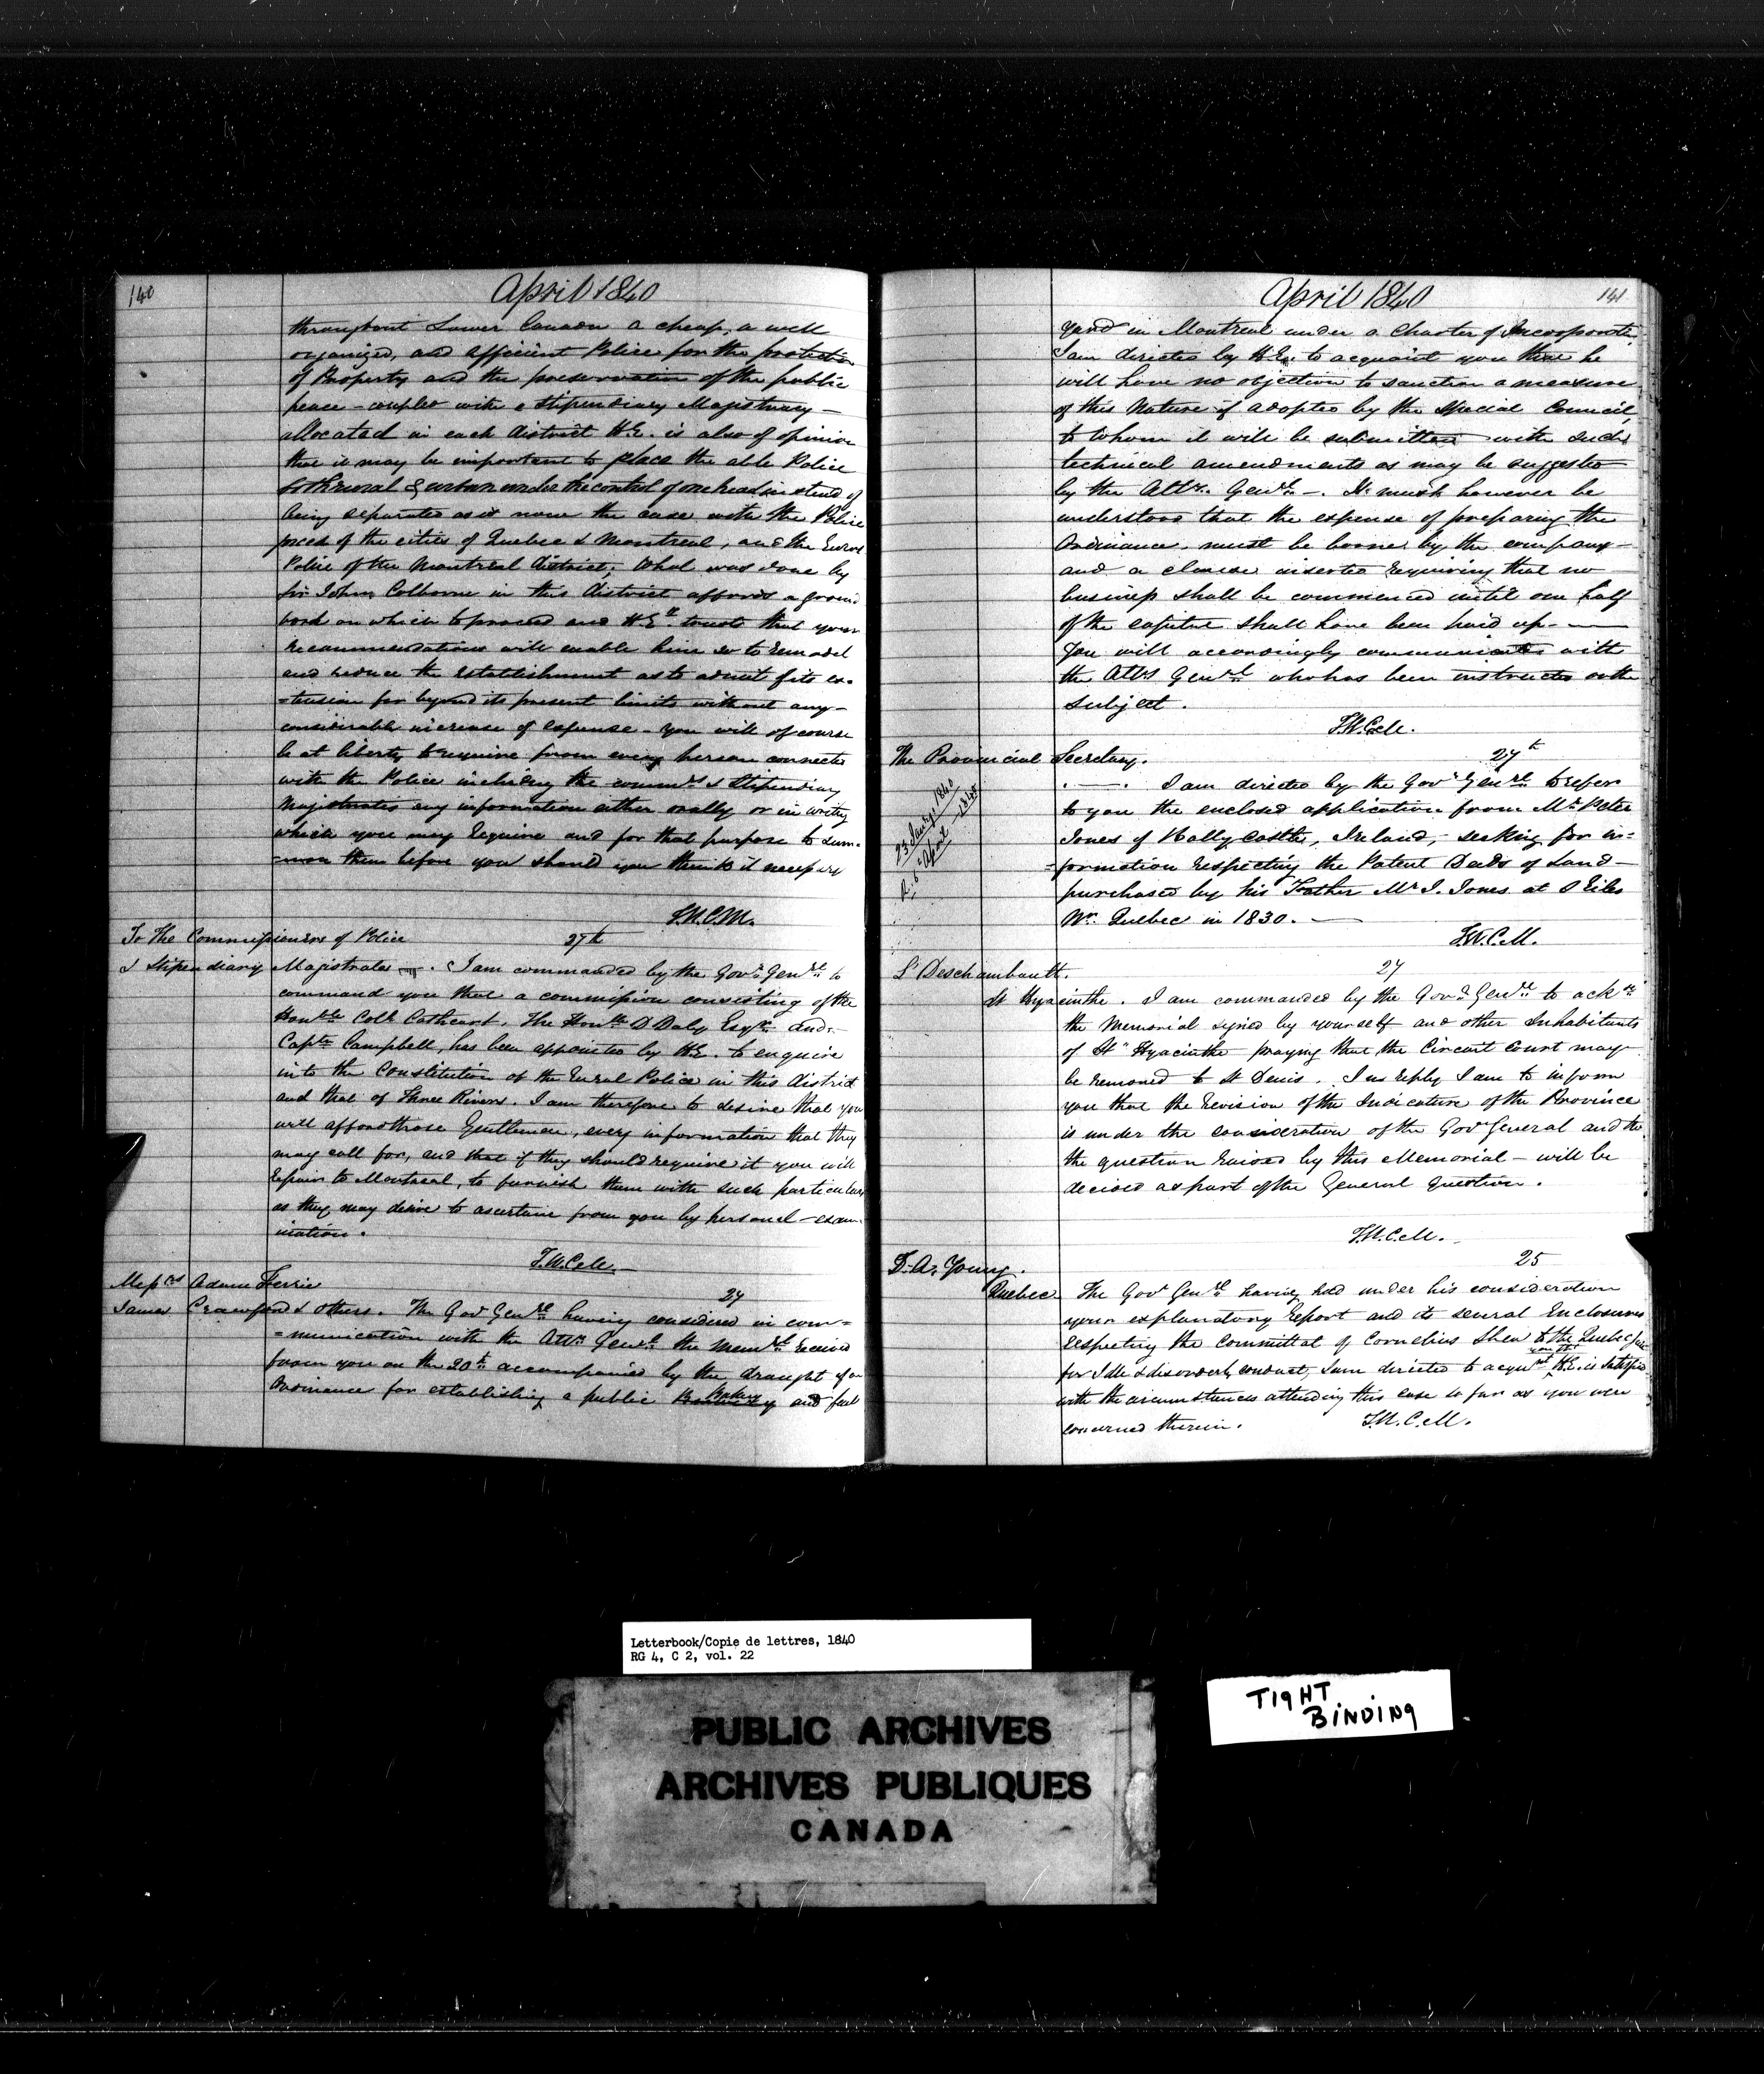 140
April 1840
throughout Lower Canada a cheap, a well
organized, and efficient Police for the protection
of Property and the preservation of the public
peace – coupled with a Stipendiary Magistracy –
allocated in each district H.E. is also of opinion
that it may be important to place the able Police
both rural & urban under the control of one head instead of
being separated as is now the case with the Police
forces of the cities of Quebec & Montreal, and the Rural
Police of the Montreal district; What was done by
Sir John Colborne in this district affords a ground
work on which to proceed and H.E. trusts that your
recommendations will enable him so to remodel
and reduce the establishment as to admit of its ex-
-tension far beyond its present limits without any –
considerable increase of expense – You will of course
be at liberty to require from every person connected
with the Police including the commrs & Stipendiary
Magistrates any information either orally or in writg
which you may require and for that purpose to sum-
-mon them before you should you think it necessary
T.W.C.M.
To The Commissioners of Police 27th
& Stipendiary Magistrates. I am commanded by the Govr Genrl to
command you that a commission consisting of the
Honble Coll Cathcart, The Honble D Daly Esqre and –
Captn Campbell, has been appointed by H.E. to enquire
into the Constitution of the Rural Police in this district
and that of Three Rivers. I am therefore to desire that you
will afford those Gentlemen, every information that they
may call for, and that if they should require it you will
repair to Montreal, to furnish them with such particulars
as they may desire to ascertain from you by personal – exam-
ination.
T.W.C.M.
Messrs Adam Ferrie 27
James Crawford & others. The Govr Genrl having considered in com=
=munication with the Atty Genrl the Memrl received
from you on the 20th accompanied by the draught of an
Ordinance for establishing a public Bakery and fuel
April 1840 141
yard in Montreal under a Charter of Incorporatn
I am directed by H.E. to acquaint you that he
will have no objection to sanction a measure
of this Nature if adopted by the Special Council,
to whom it will be submitted with such
technical amendments as may be suggested
by the Atty. Genrl –. It must however be
understood that the expense of preparing the
Ordinance must be borne by the company –
and a clause inserted requiring that no
business shall be commenced until one half
of the capital shall have been paid up –
You will accordingly communicate with
the Atty Genrl who has been instructed on the
subject.
T.W.C.M.
The Provincial Secretary. 27th
23 Jany 1840
R. 6 April 1840
I am directed by the Govr Genrl to refer
to you the enclosed application from Mr Peter
Jones of Ballycastle, Ireland, – seeking for in=
=formation respecting the Patent Deeds of Land –
purchased by his Father Mr J. Jones at
Nr. Quebec in 1830. –
T.W.C.M.
L Deschambault. 27
St Hyacinthe. I am commanded by the Govr Genrl to ackge
the Memorial signed by yourself and other Inhabitants
of St Hyacinthe praying that the Circuit Court may
be removed to St Denis. In reply I am to inform
you that the revision of the Judicature of the Province
is under the consideration of the Govr General and tht
the question raised by this Memorial – will be
decided as part of the General question.
T.W.C.M.
T. A. Young. 25
Quebec The Govr Genrl having had under his consideration
your explanatory report and its several Enclosures
respecting the Committal of Cornelius Shea to the Quebec
for Idle & disorderly conduct, I am directed to acqunt you tht H.E. is satisfied
with the circumstances attending this case so far as you were
concerned therein. T.W.C.M.
Letterbook/Copie de lettres, 1840
RG 4, C 2, vol. 22
PUBLIC ARCHIVES
ARCHIVES PUBLIQUES
CANADA
TIGHT
BINDING